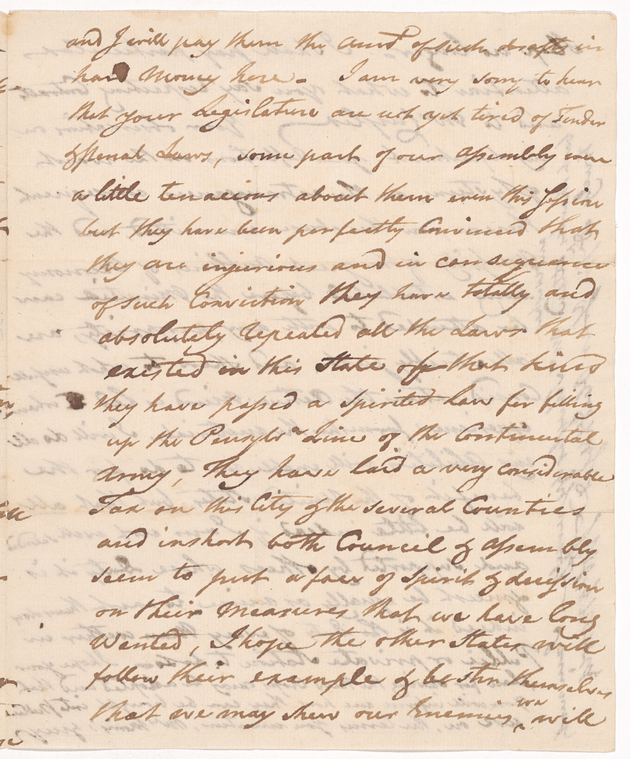 and I will pay them the amt of such drafts in
hard Money here. I am very sorry to hear
that your Legislature are not yet tired of Tender
& penal Laws, some part of our assembly were
a little tenacious about them even this Session
but they have been perfectly Convinced that
they are injurious and in consequence
of such Conviction they have totally and
absolutely repealed all the Laws that
existed in this State of that kind
they have passed a spirited law for filling
up the Pensyla Line of the Continental
army, They have laid a very considerable
Tax on this City & the several Counties
and in short both Council & assembly
seem to put a face of Spirit & decision
on their measures that we have long
wanted, I hope the other States will
follow their example & bestir themselves
that we may shew our Enemies we will